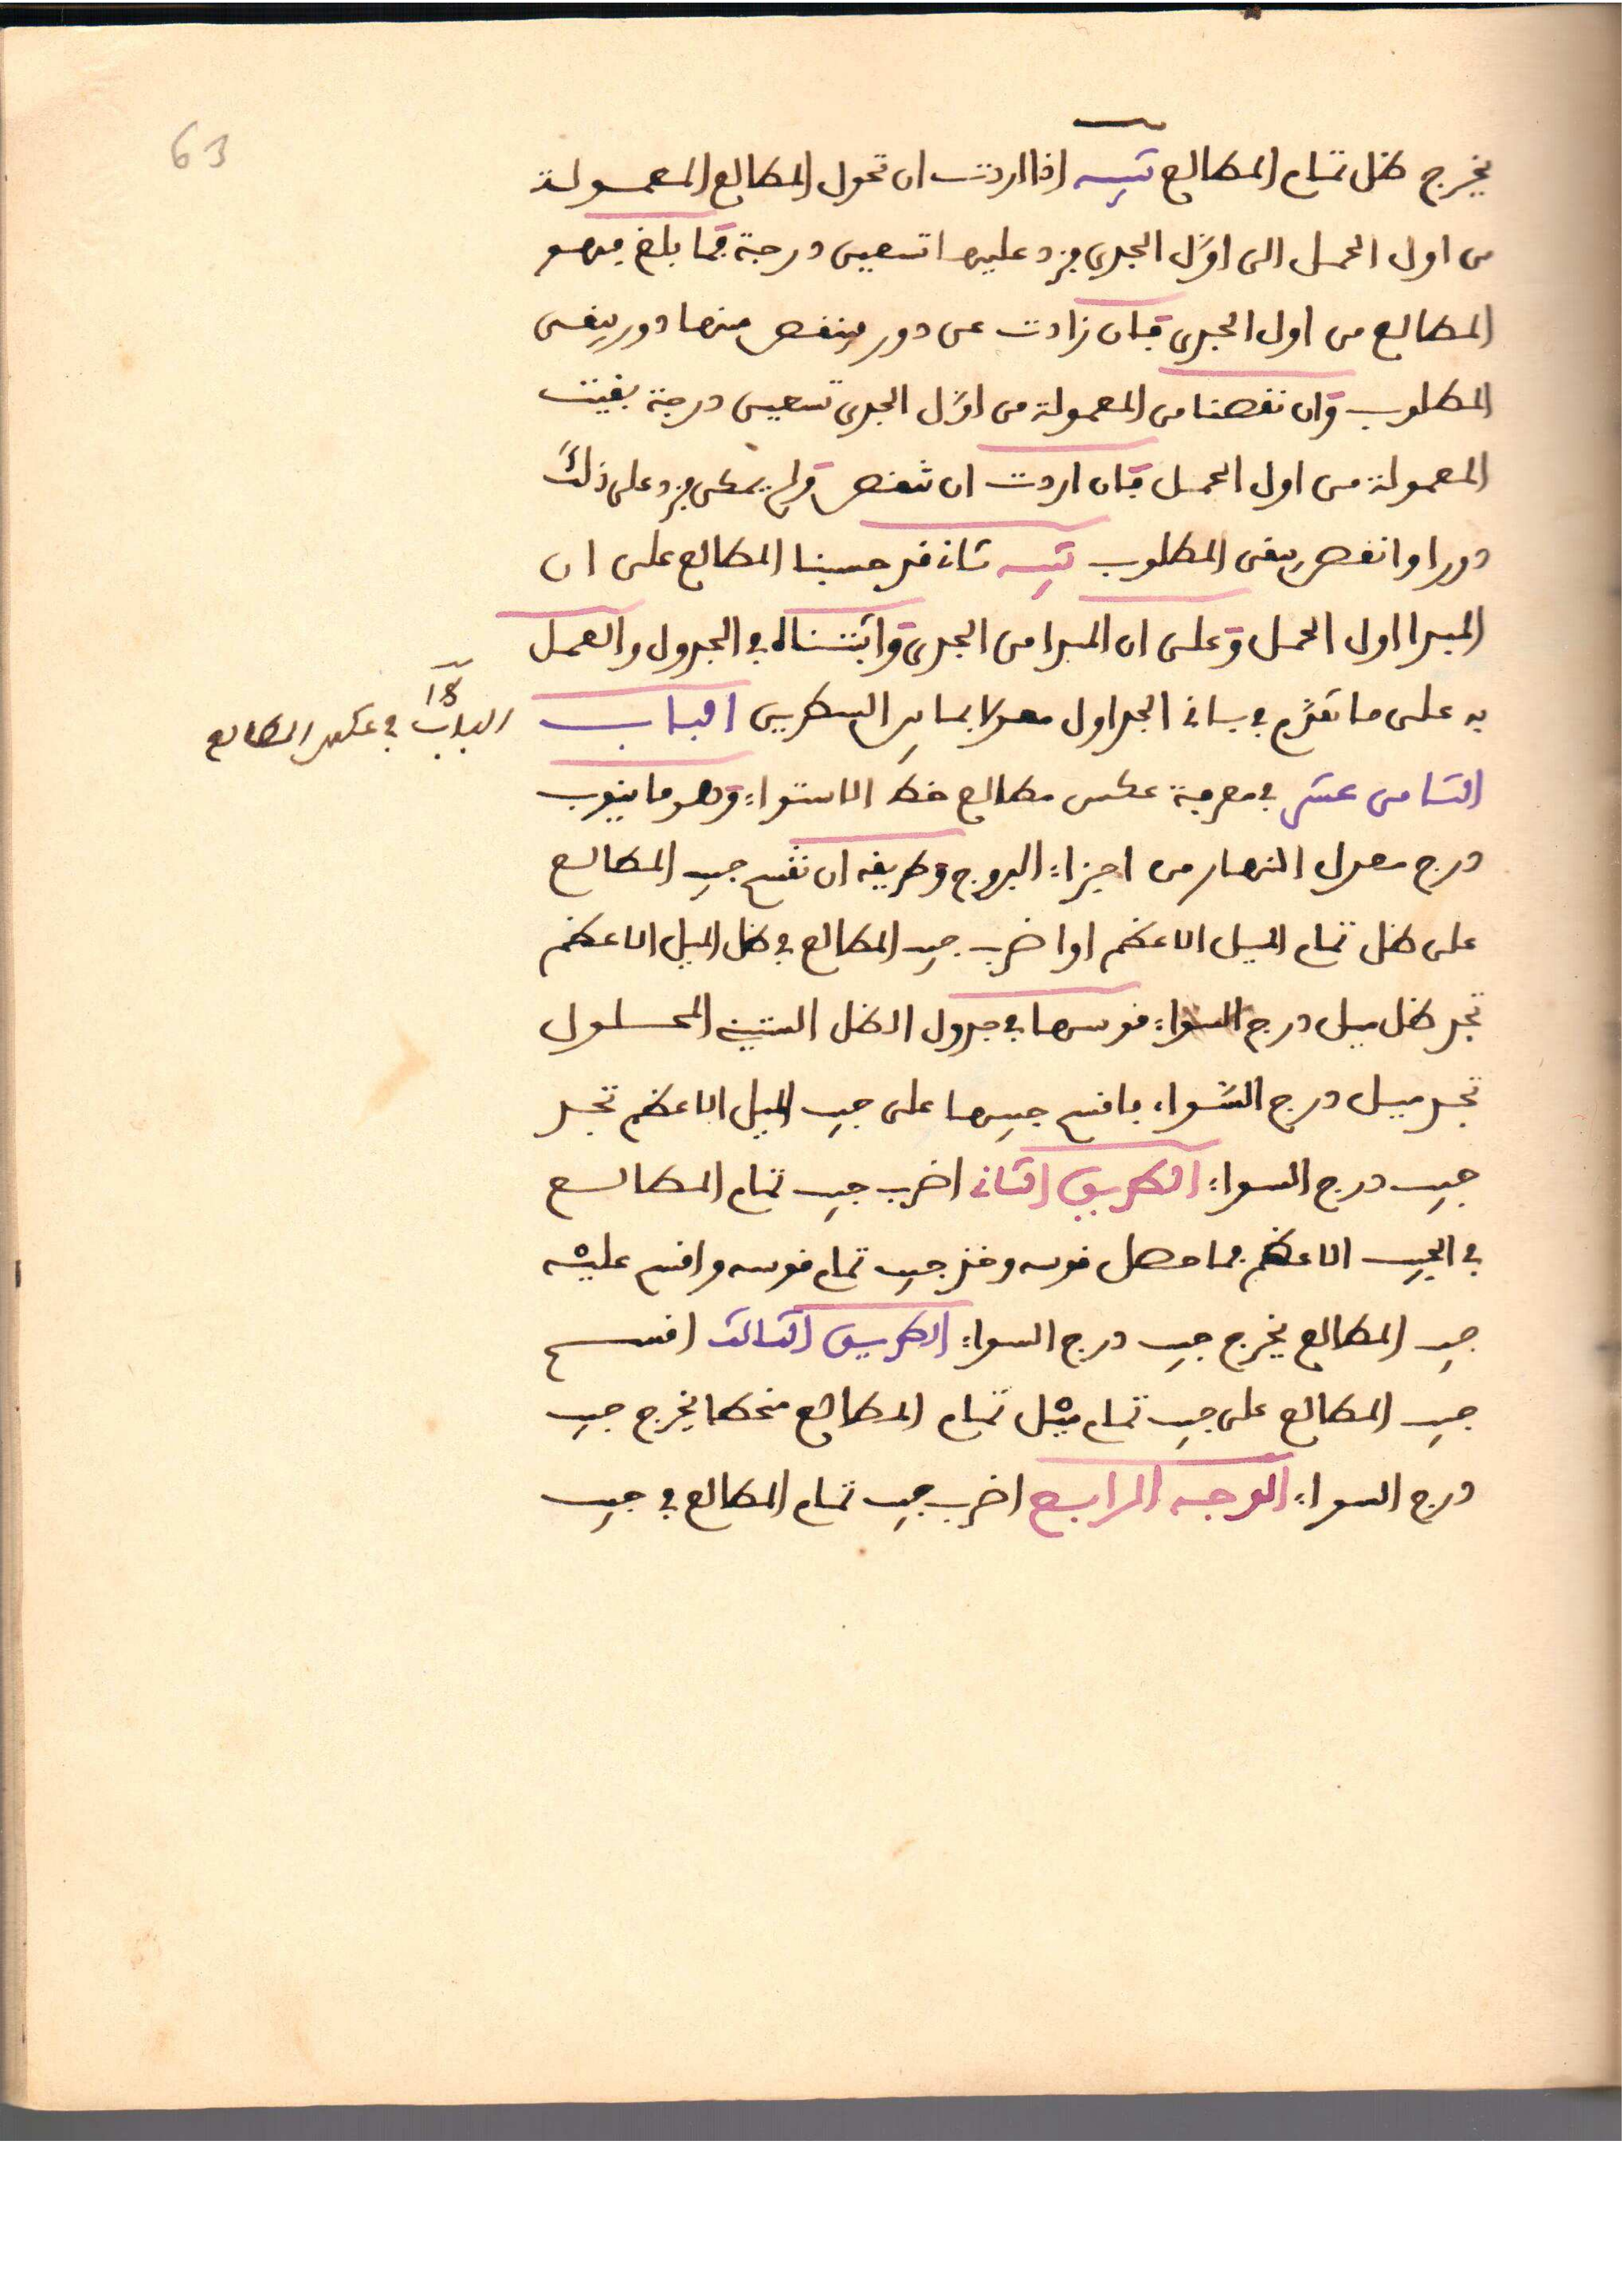 63
يخرج ظل تمام المطالع تنبيه اذا اردت ان تحول المطالع المعمولة
من اول الحمل الى اوّل الجدي فزد عليها تسعين درجة فما بلغ فهو
المطالع من اول الجدي فإن زادت عن دور فينقص منها دور يبقى
المطلوب وان نقصنا من المعمولة من اوّل الجدي تسعين درجة بقيت
المعمولة من اول الحمل فإن اردت ان تنقص ولم يمكن فزد على ذلك
دورا وانقص يبقى المطلوب تنبيه ثان قد حسبنا المطالع على ان
المبدا اول الحمل وعلى ان المبدا من الجدي واثبتناه في الجدول والعمل
به على ما تقدّم في بيان الجداول معدلا بما بين السطرين الباب
الباب 18 في عكس المطالع
الثامن عشر في معرفة عكس مطالع خط الاستواء وهو ما ينوب
درج معدل النهار من اجزاء البروج وطريقه ان تقسم جيب المطالع
على ظل تمام الميل الاعظم او اضرب جيب المطالع في ظل الميل الاعظم
تجد ظل ميل درج السواء قوسها في جدول الظل الستيني المحلول
تجد ميل درج السّواء فاقسم جيبها على جيب الميل الاعظم تجد
جيب درج السواء الطريق الثاني اضرب جيب تمام المطالع
في الجيب الاعظم فما حصل قوسه وخذ جيب تمام قوسه واقسم عليه
جيب المطالع يخرج جيب درج السواء الطريق الثالث اقسم
جيب المطالع على جيب تمام ميل تمام المطالع منحطا يخرج جيب
درج السواء الوجه الرابع اضرب جيب تمام المطالع في جيب